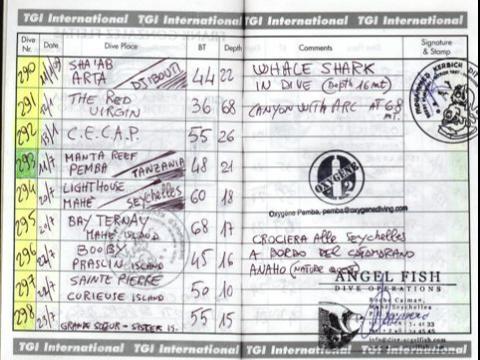 TGI International TGI International TGI International TGI International
Dive Nr. Date Dive Place BT Depth Comments Signature & Stamp
290 SHA'AB ARTA DJIBOUTI 44 22 WHALE SHARK
IN DIVE (Depth 16 mt)
291 THE RED VIRGIN 36 68 CANYON WITH ARC AT 68 MT.
292 C.E.C.A.P. 55 26
293 MANTA REEF
PEMBA TANZANIA 48 21
OXYGENE
Oxygène Pemba, pemba@oxygenediving.com
294 LIGHTHOUSE
MAHÉ Seychelles 60 18
295 BAY TERNAY
MAHÉ ISLAND 68 17
CROCIERA Alle Seychelles
A BORDO DEL CATAMARANO
ANAHO
296 BOOBY
PRASLIN ISLAND 45 16
297 SAINTE PIERRE
CURIEUSE ISLAND 50 10
298 GRANDE SOEUR - SISTER IS. 55 15
ANGEL FISH
DIVE OPERATIONS
TGI International TGI International International